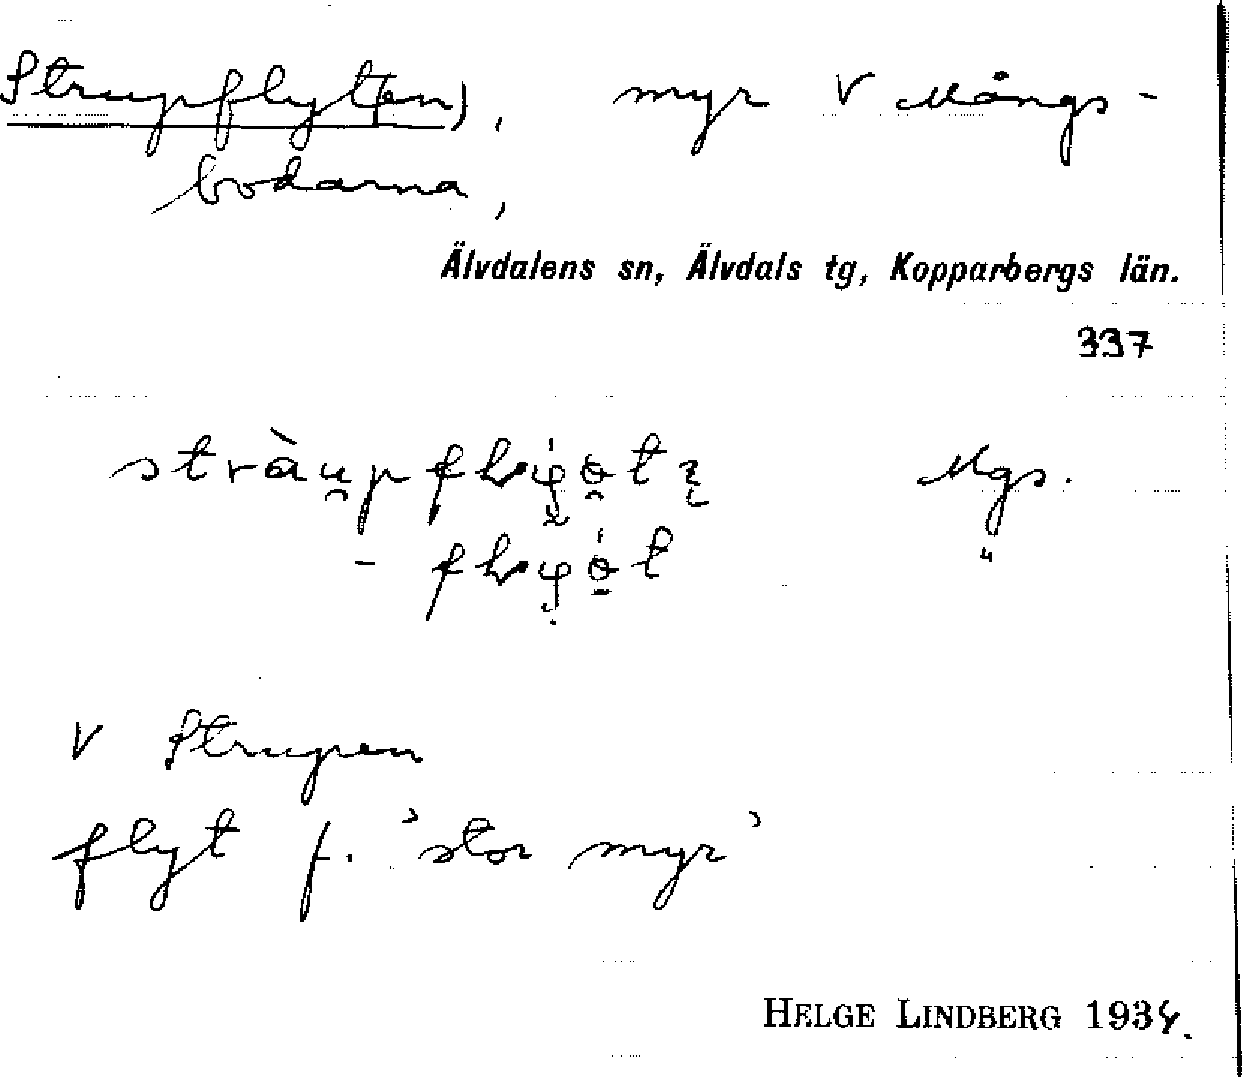 Strupflyt(en), myr V Mångs-
bodarna,
Älvdalens sn, Älvdals tg, Kopparbergs län.
337
Mgs.
"
V Strupen
flyt f. 'stor myr'
HELGE LINDBERG 1934.